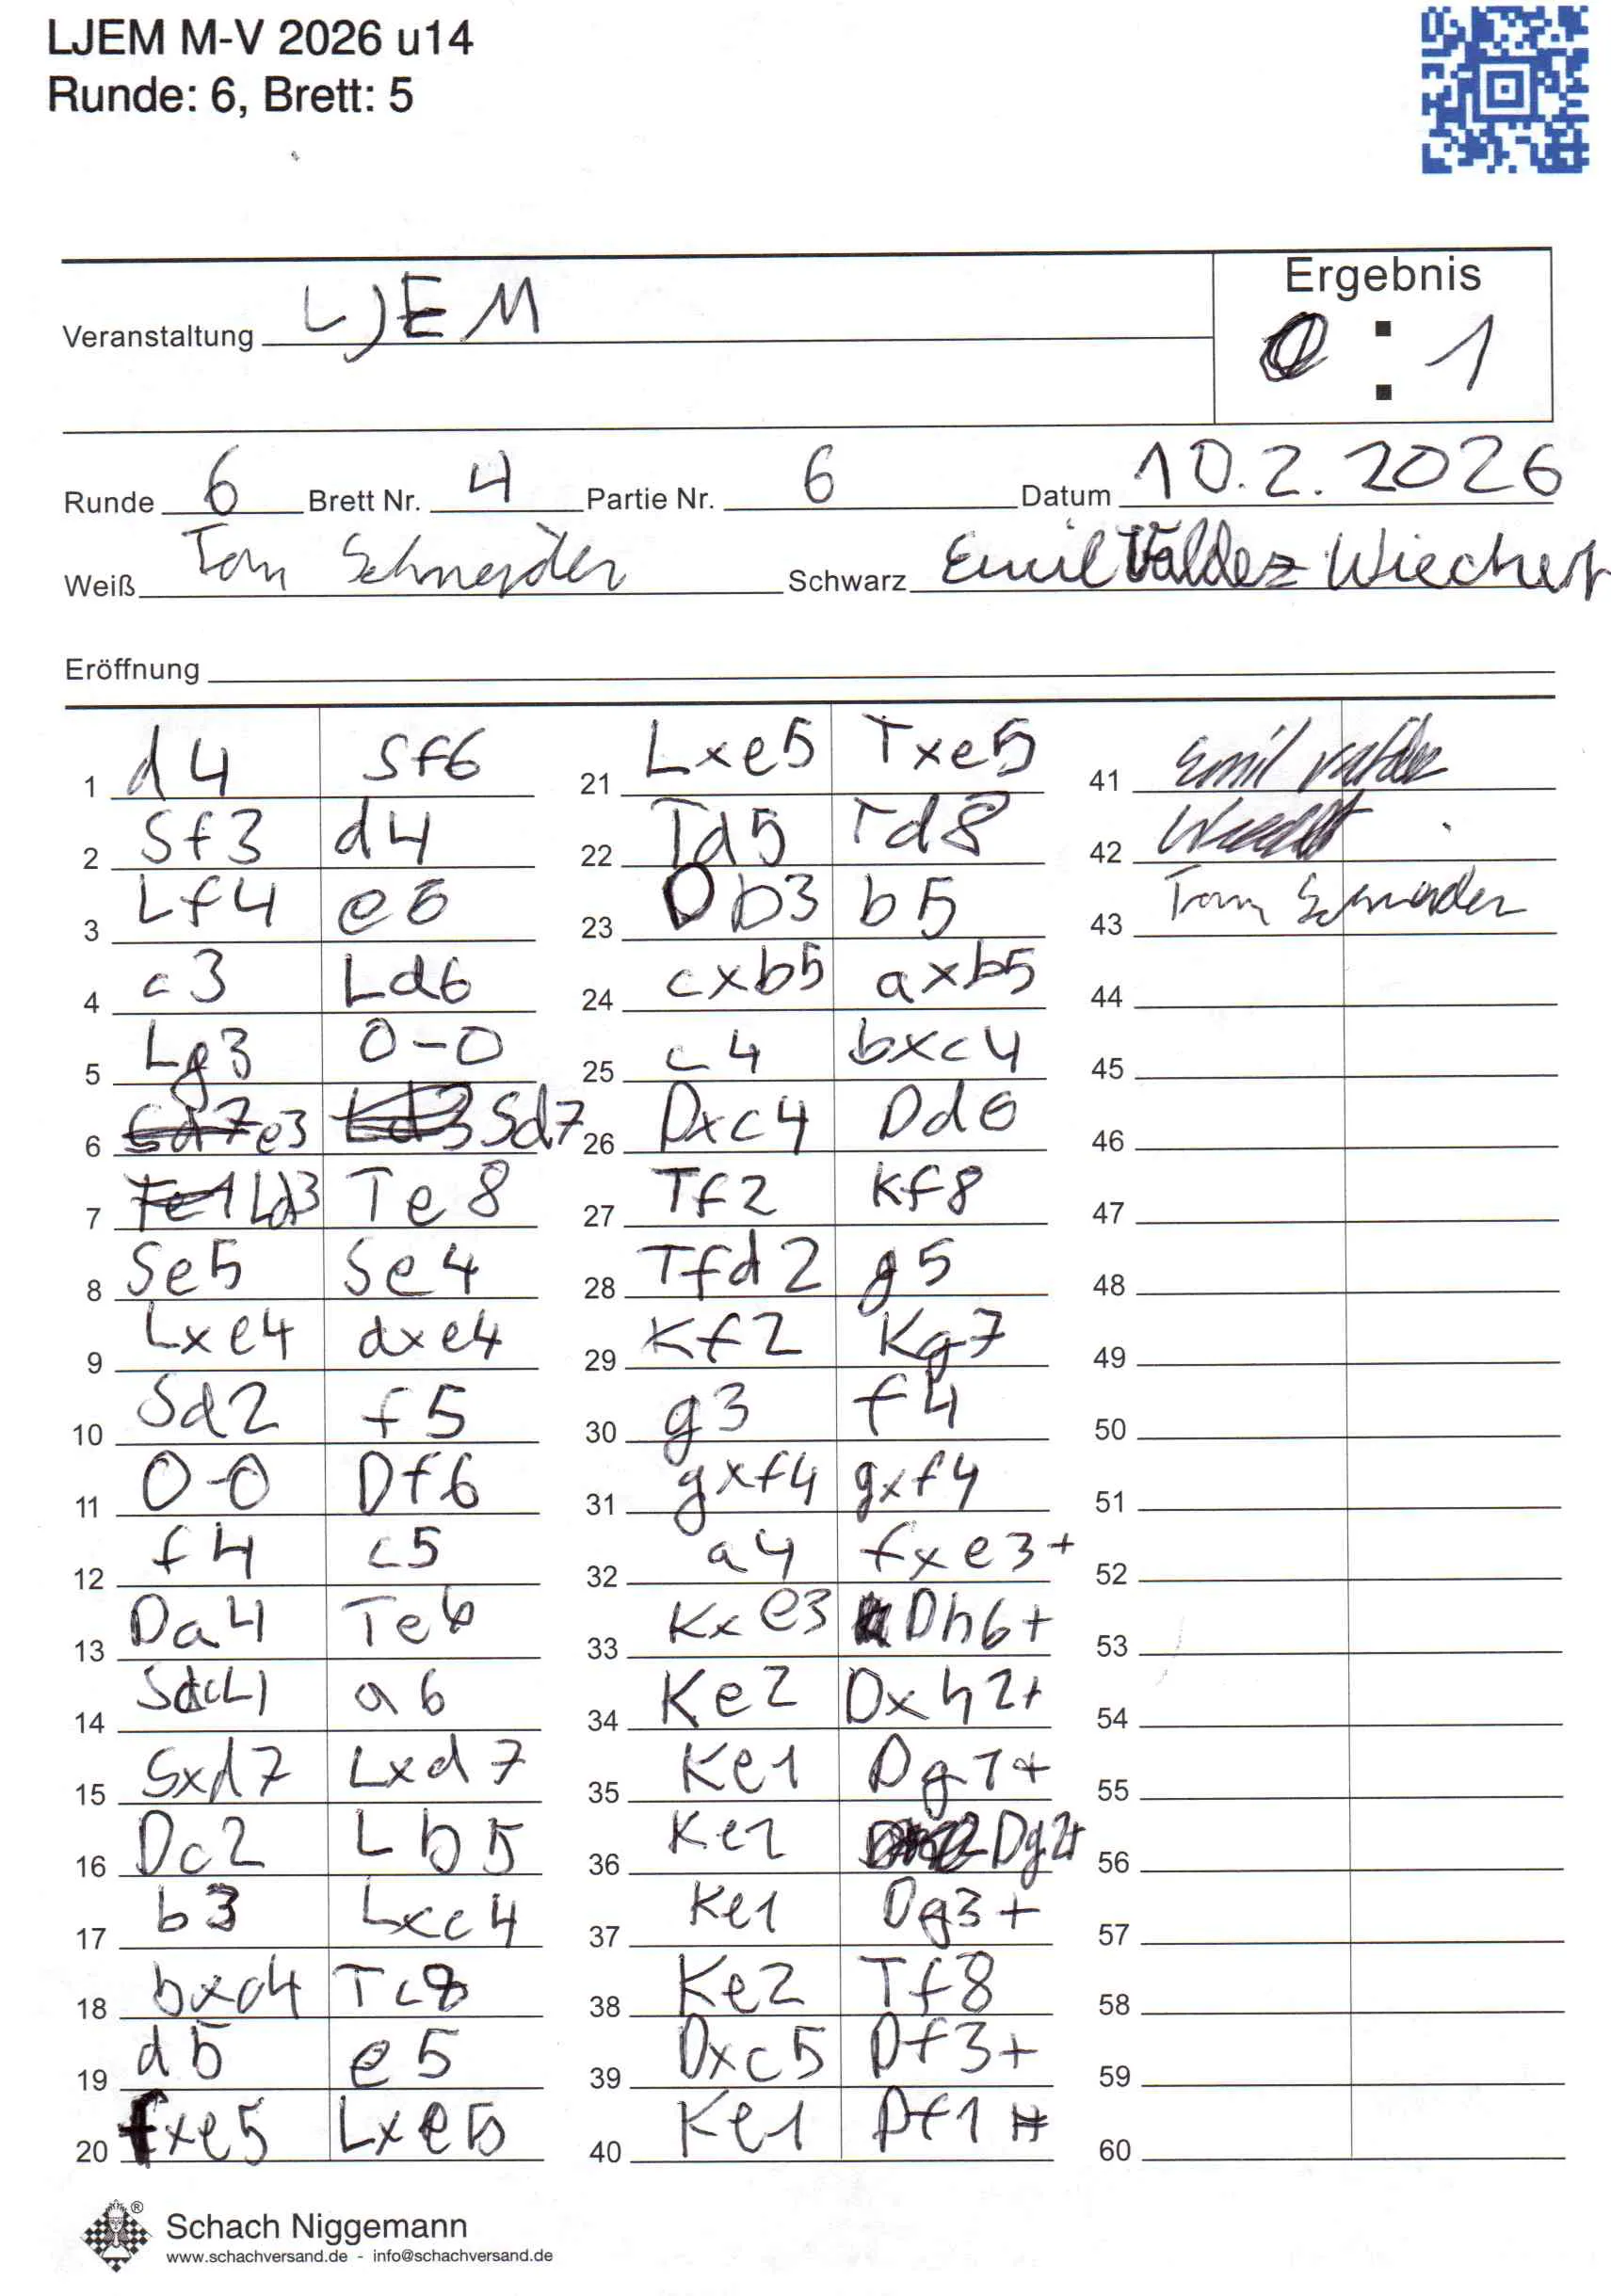 LJEM M-V 2026 u14
Runde: 6, Brett: 5
Veranstaltung LJEM
Ergebnis
0 : 1
Runde 6 Brett Nr. 4 Partie Nr. 6 Datum 10.2.2026
Weiß Tom Schneider Schwarz Emil Valdez Wiechert
Eröffnung
1 d4 Sf6
2 Sf3 d4
3 Lf4 e6
4 c3 Ld6
5 Lg3 0-0
6 e3 Sd7
7 Ld3 Te8
8 Se5 Se4
9 Lxe4 dxe4
10 Sd2 f5
11 0-0 Df6
12 f4 c5
13 Da4 Te6
14 Sdc4 a6
15 Sxd7 Lxd7
16 Dc2 Lb5
17 b3 Lxc4
18 bxc4 Tc8
19 d5 e5
20 fxe5 Lxe5
21 Lxe5 Txe5
22 Td5 Td8
23 Db3 b5
24 cxb5 axb5
25 c4 bxc4
26 Dxc4 Dd6
27 Tf2 Kf8
28 Tfd2 g5
29 Kf2 Kg7
30 g3 f4
31 gxf4 gxf4
32 a4 fxe3+
33 Kxe3 Dh6+
34 Ke2 Dxh2+
35 Ke1 Dg1+
36 Ke2 Dg2+
37 Ke1 Dg3+
38 Ke2 Tf8
39 Dxc5 Df3+
40 Ke1 Df1#
41 Emil Valdez
42
43 Tom Schneider
44
45
46
47
48
49
50
51
52
53
54
55
56
57
58
59
60
Schach Niggemann
www.schachversand.de - info@schachversand.de